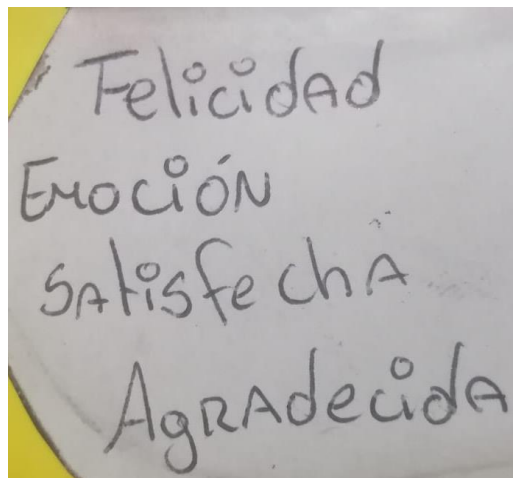 Felicidad
Emoción
Satisfecha
Agradecida